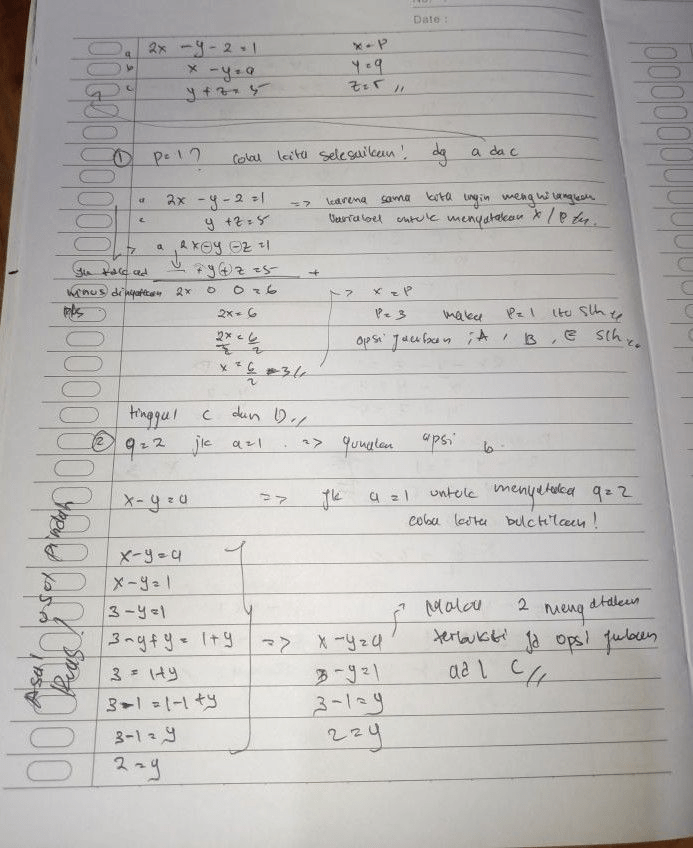 Date :
a 2x - y - 2 = 1 x = p
b x - y = a y = q
c y + z = 5 z = r //
① p = 1 ? coba kita selesaikan! dg a da c
a 2x - y - 2 = 1 => karena sama kita ingin menghilangkan
c y + z = 5 variabel untuk menyatakan x / p
a 2x - y - z = 1
+ y + z = 5 +
minus 2x 0 0 = 6 -> x = p
2x = 6 p = 3 maka p = 1 itu slh
2x/2 = 6/2 opsi jawaban ; A , B , E slh
x = 6/2 = 3 //
tinggal c dan D //
② q = 2 jk a = 1 . => gunakan opsi b.
x - y = a => jk a = 1 untuk q = 2
coba kita buktikan!
x - y = a
x - y = 1
3 - y = 1 Maka 2 mengatakan
3 - y + y = 1 + y => x - y = a terbukti jd opsi
3 = 1 + y 3 - y = 1 ad l C //
3 - 1 = 1 - 1 + y 3 - 1 = y
3 - 1 = y 2 = y
2 = y
Asal usol Pindah
Ruas!